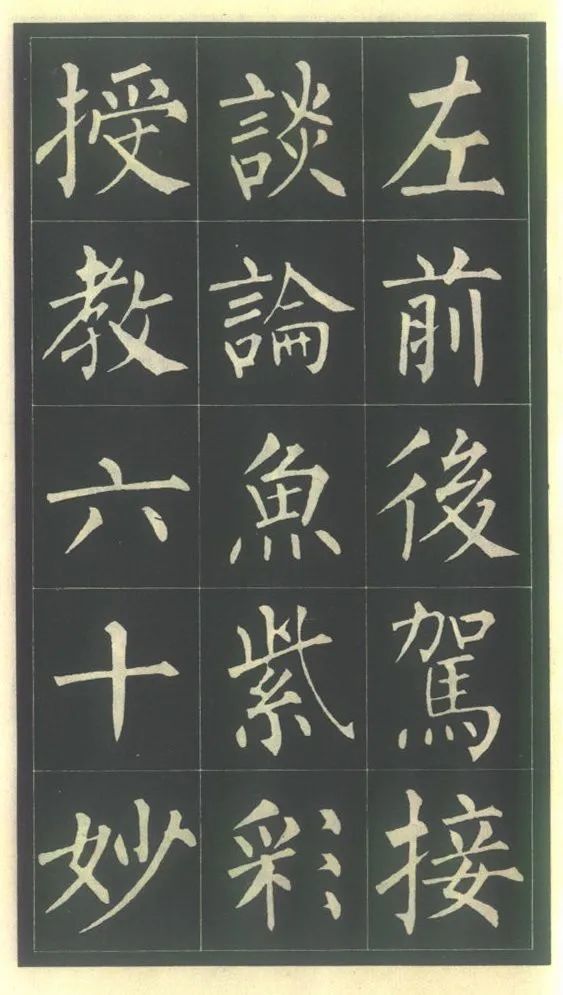 左前後駕接
談論魚紫彩
授教六十妙